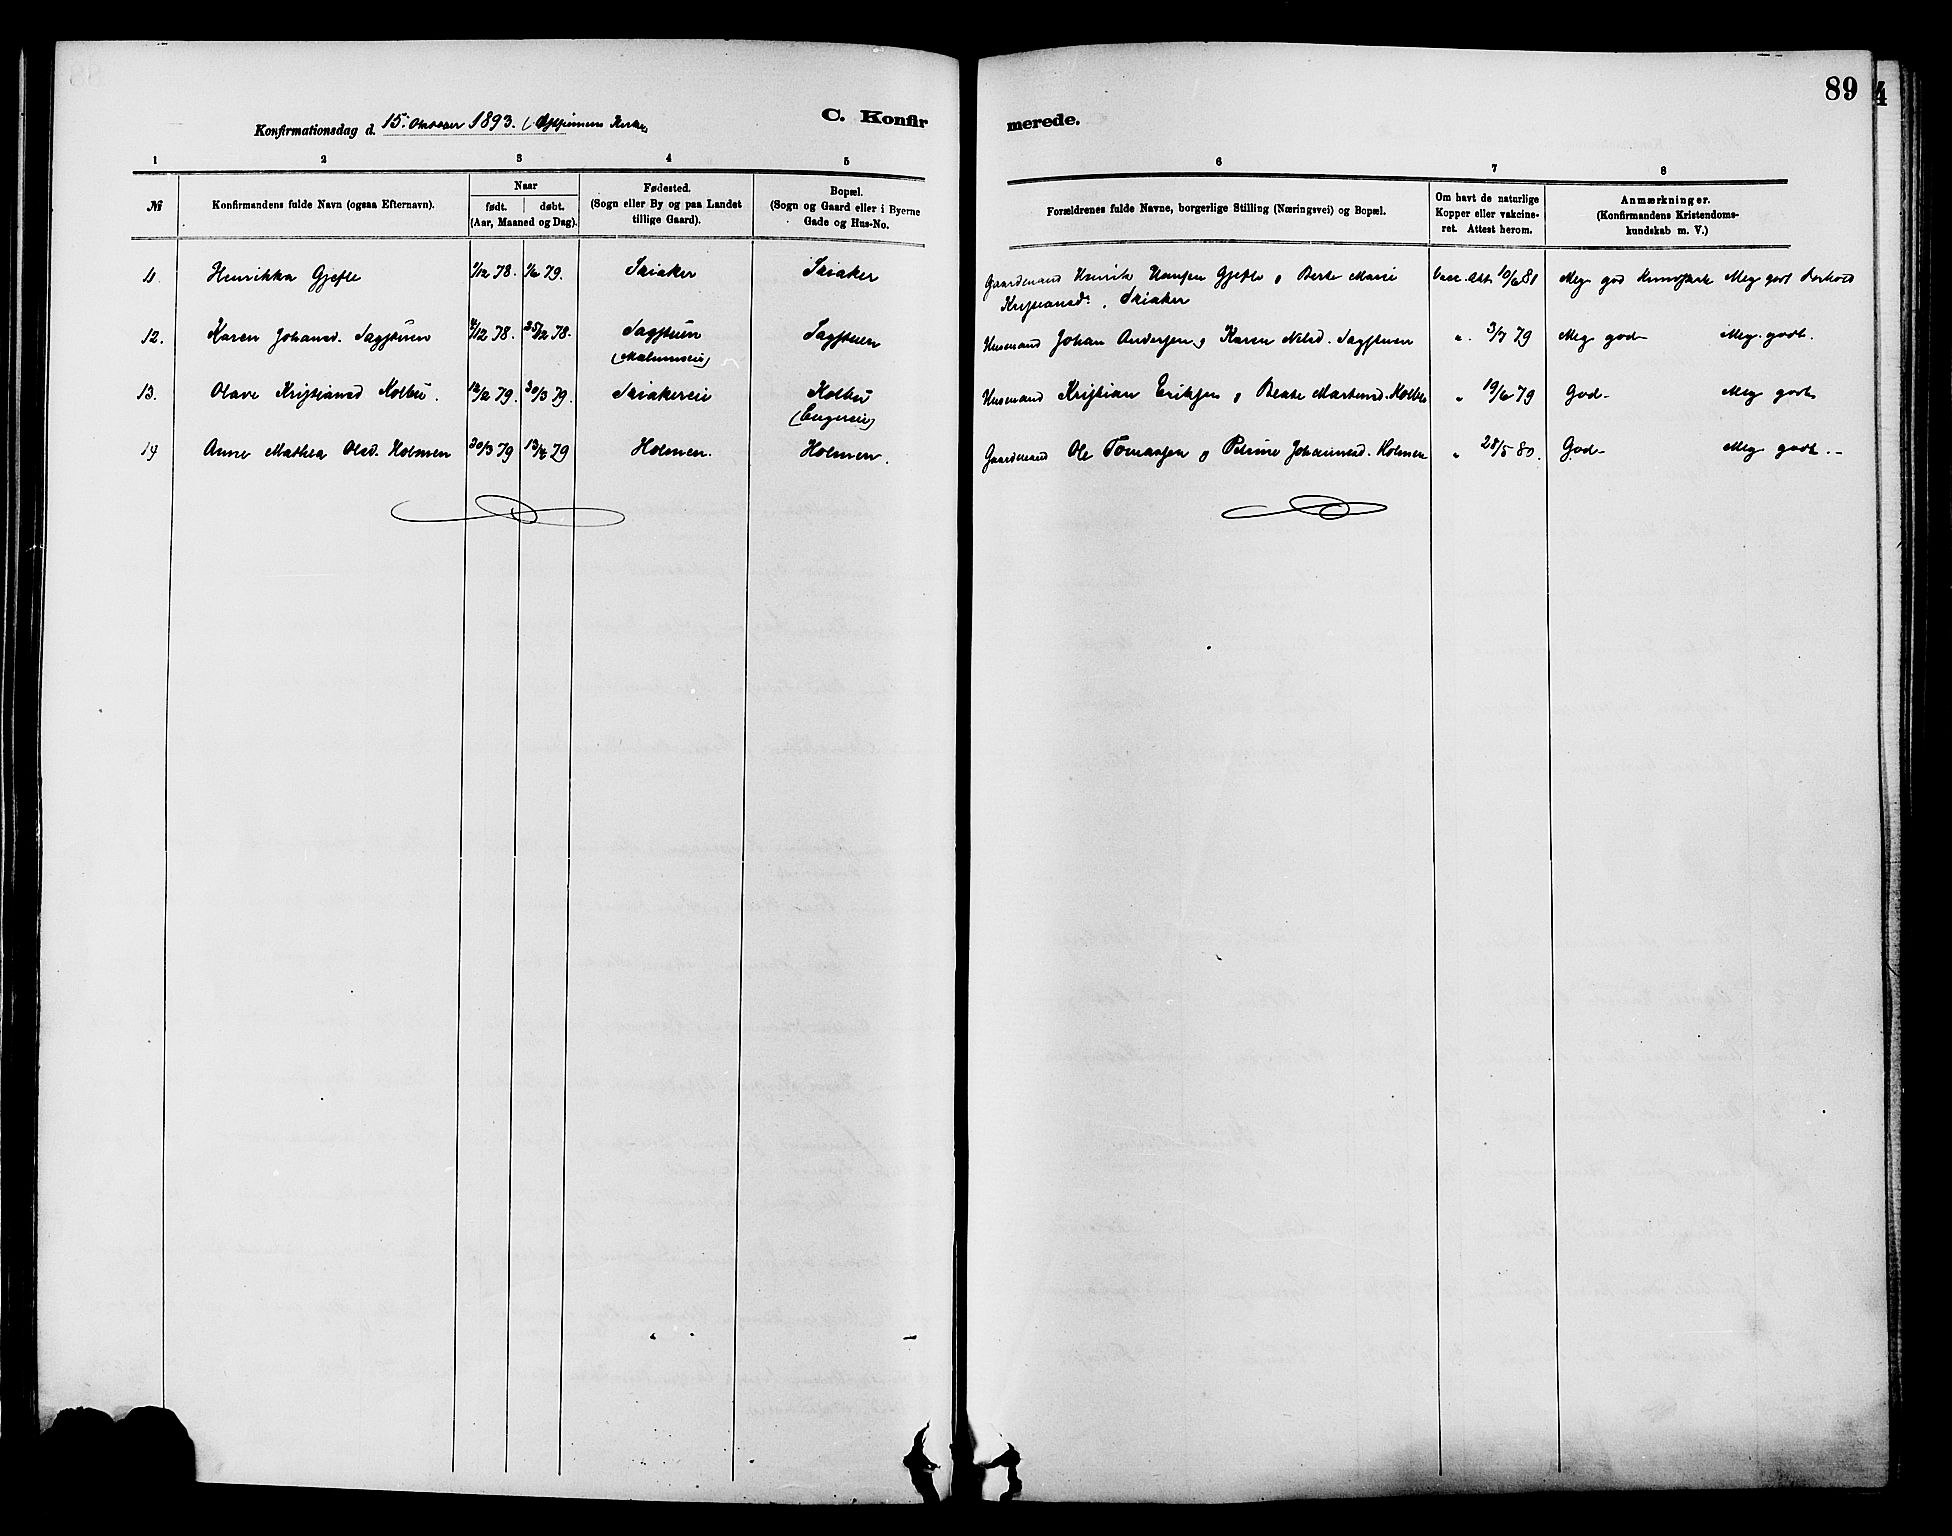 89
4
Konfirmationsdag d. 15. Oktober 1893. Kirke)
C. Konfir
merede.
1 2 3 4 5
6 7 8
№
Konfirmandens fulde Navn (ogsaa Efternavn).
Naar
født. døbt.
(Aar, Maaned og Dag).
Fødested.
(Sogn eller By og paa Landet
tillige Gaard).
Bopæl.
(Sogn og Gaard eller i Byerne
Gade og Hus-No.
Forældrenes fulde Navne, borgerlige Stilling (Næringsvei) og Bopæl.
Om havt de naturlige
Kopper eller vakcine-
ret. Attest herom.
Anmærkninger.
(Konfirmandens Kristendoms-
kundskab m. V.)
11 Henrikka Gjefle 1/12 78. 1/6 79. Skiaker Skiaker Gaardmand Henrik Hansen Gjefle og Berte Marie Vacc. Att. 10/6 80 Meg. god Kundskab Meg. godt Forhold
Kristiansd., Skiaker
12. Karen Johansd. Sagstuen 4/12 78. 25/12 78. Sagstuen Sagstuen Husmand Johan Andersen og Karen Nilsd. Sagstuen " 3/7 79 Meg. god Meg. godt.
13. Olave Kristiansd Kolbu. 12/2 79. 30/3 79. Skiakereie Kolbu Husmand Kristian Eriksen og Beate Martinsd. Kolbu " 19/6 79 God Meg godt
14 Anne Mathea Olsd. Holmen 30/3 79 13/4 79 Holmen. Holmen. Gaardmand Ole Tomassen og Petrine Johannesd. Holmen " 28/5 80. God Meg godt.